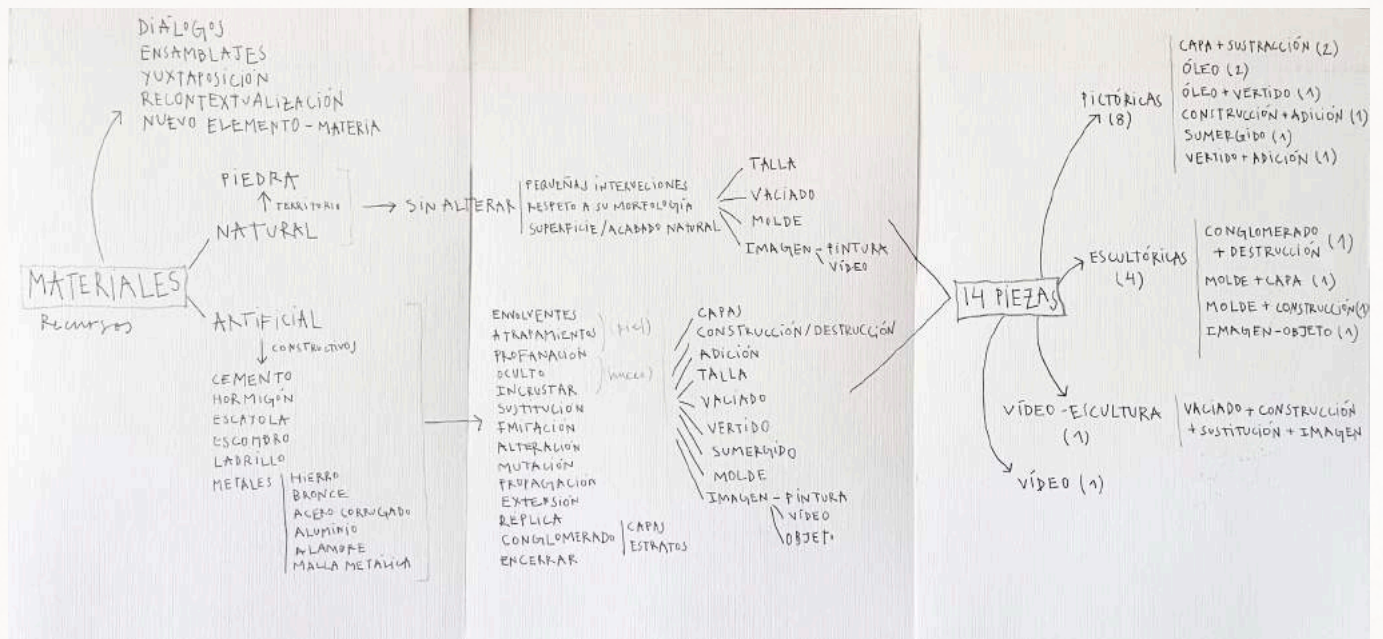 DIÁLOGOS
ENSAMBLAJES
YUXTAPOSICIÓN
RECONTEXTUALIZACIÓN
NUEVO ELEMENTO - MATERIA
PIEDRA
TERRITORIO
NATURAL
MATERIALES
Recursos
ARTIFICIAL
CONSTRUCTIVOS
CEMENTO
HORMIGÓN
ESCAYOLA
ESCOMBRO
LADRILLO
METALES
HIERRO
BRONCE
ACERO CORRUGADO
ALUMINIO
ALAMBRE
MALLA METÁLICA
SIN ALTERAR
PEQUEÑAS INTERVECIONES
RESPETO A SU MORFOLOGÍA
SUPERFICIE/ACABADO NATURAL
TALLA
VACIADO
MOLDE
IMAGEN - PINTURA
VÍDEO
ENVOLVENTES
ATRAPAMIENTOS (piel)
PROFANACIÓN
OCULTO (hueco)
INCRUSTAR
SUSTITUCIÓN
IMITACIÓN
ALTERACIÓN
MUTACIÓN
PROPAGACIÓN
EXTENSIÓN
RÉPLICA
CONGLOMERADO
ENCERRAR
CAPAS
ESTRATOS
CAPAS
CONSTRUCCIÓN/DESTRUCCIÓN
ADICIÓN
TALLA
VACIADO
VERTIDO
SUMERGIDO
MOLDE
IMAGEN - PINTURA
VÍDEO
OBJETO
14 PIEZAS
PICTÓRICAS
(8)
CAPA + SUSTRACCIÓN (2)
ÓLEO (2)
ÓLEO + VERTIDO (1)
CONSTRUCCIÓN + ADICIÓN (1)
SUMERGIDO (1)
VERTIDO + ADICIÓN (1)
ESCULTÓRICAS
(4)
CONGLOMERADO
+ DESTRUCCIÓN (1)
MOLDE + CAPA (1)
MOLDE + CONSTRUCCIÓN (1)
IMAGEN-OBJETO (1)
VÍDEO-ESCULTURA
(1)
VACIADO + CONSTRUCCIÓN
+ SUSTITUCIÓN + IMAGEN
VÍDEO (1)